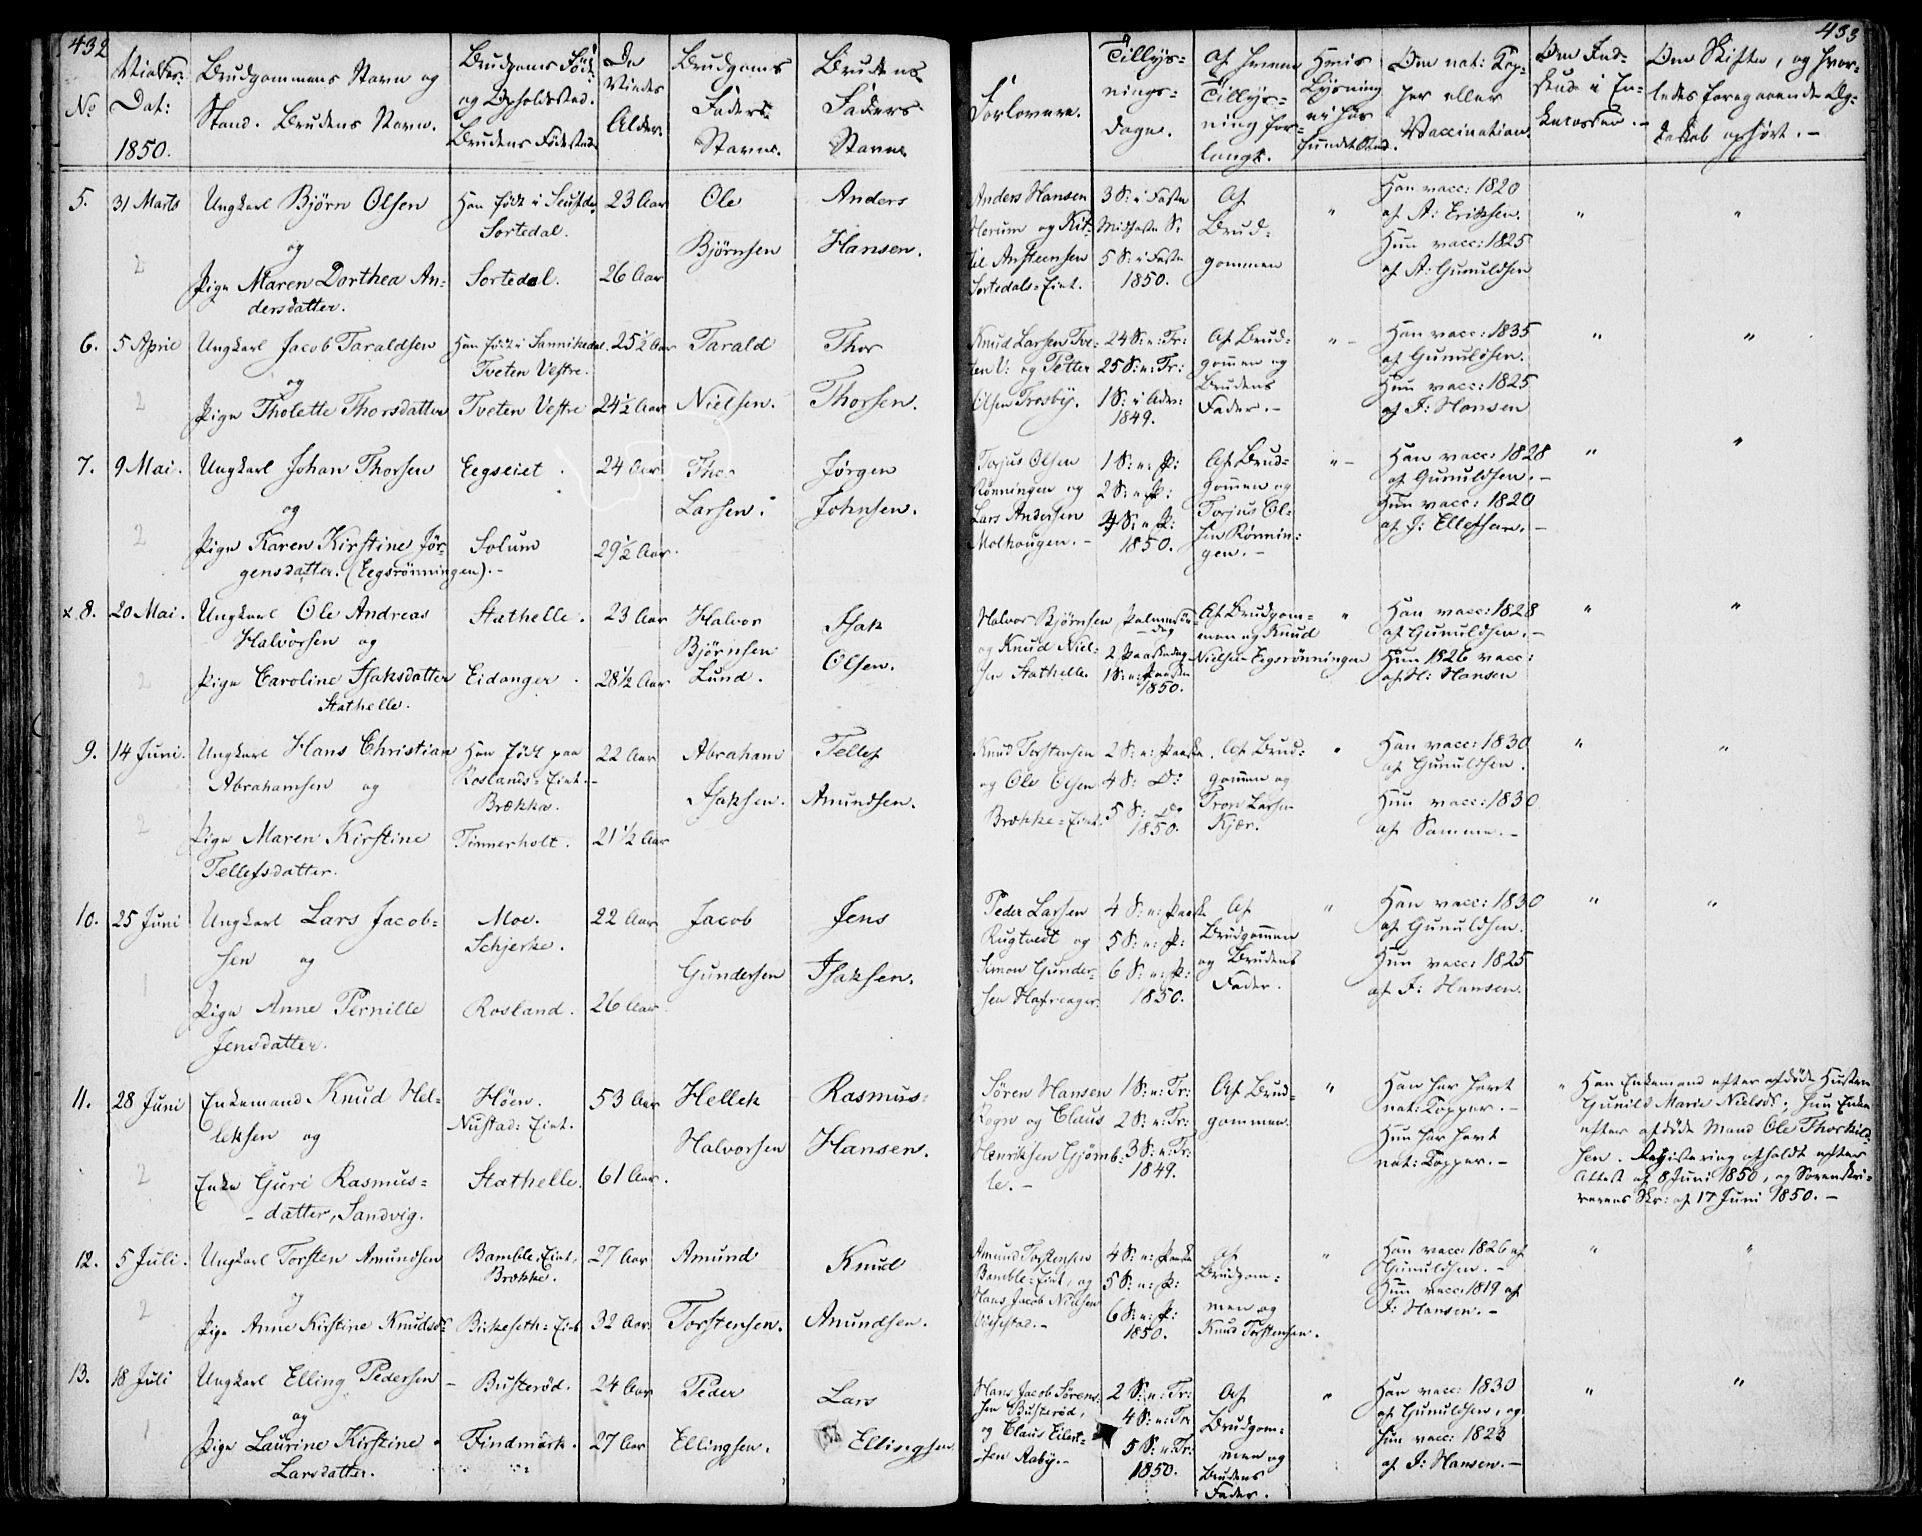 432
No
Vielses-
Dat:
1850.
Brudgommens Navn og
Stand. Brudens Navn.
Brudgoms Føde
og Opholdssted.
Brudens Fødested.
De
Viedes
Alder.
Brudgoms
Faders
Navn.
Brudens
Faders
Navn.
5.
31 Marts
Ungkarl Bjørn Olsen
og
Pige Maren Dorthea An-
dersdatter.
Han født i
Sortedal.
Sortedal.
23 Aar
26 Aar
Ole
Bjørnsen
Anders
Hansen.
6.
5 April
Ungkarl Jacob Taraldsen
og
Pige Tholette Thorsdatter
Han født i Sannikedal.
Tveten Vestre.
Tveten Vestre
25½ Aar
24½ Aar
Tarald
Nielsen.
Thor
Thorsen.
7.
9 Mai.
Ungkarl Johan Thorsen
og
Pige Karen Kirstine Jör-
gensdatter. (Eegsrönningen).-
Eegseiet.
Solum
24 Aar
29½ Aar.
Thor
Larsen.
Jørgen
Johnsen.
x 8.
20 Mai.
Ungkarl Ole Andreas
Halvorsen og
Pige Caroline Isaksdatter
Stathelle.
Stathelle.
Eidanger.
23 Aar
28½ Aar
Halvor
Bjørnsen
Lund.
Isak
Olsen.
9.
14 Juni.
Ungkarl Hans Christian
Abrahamsen og
Pige Maren Kirstine
Tellefsdatter.
Han født paa
Roslands-Eiet.
Brække.
Tinnerholt.
22 Aar
21½ Aar
Abraham
Isaksen.
Tellef
Amundsen.
10.
25 Juni
Ungkarl Lars Jacob-
sen og
Pige Anne Pernille
Jensdatter.
Moe.
Schjerke.
Rosland.
22 Aar
26 Aar.
Jacob
Gundersen
Jens
Isaksen.
11.
28 Juni
Enkemand Knud Hel-
leksen og
Enke Guri Rasmus-
-datter, Sandvig.
Höen.
Nustad: Eiet.
Stathelle.
53 Aar
61 Aar.
Hellek
Halvorsen
Rasmus
Hansen.
12.
5 Juli.
Ungkarl Torsten Amundsen
og
Pige Anne Kirstine Knudsd:
Bamble-Eiet,
Brække.
Birkeseth-Eiet
27 Aar
32 Aar
Amund
Torstensen.
Knud
Amundsen.
13.
18 Juli
Ungkarl Elling Pedersen
og
Pige Laurine Kirstine
Larsdatter.
Busterød.
Findmark.
24 Aar
27 Aar
Peder
Ellingsen.
Lars
Ellingsen
433
Forlovere.
Tillys-
nings-
dage.
Af hvem
Tillys-
ning for-
langt.
Hvis
Lysning
ei har
fundet Sted.
Om nat: Kop-
per eller
Vaccination.
Om Ind-
skud i En-
kekassen.-
Om Skifte, og hvor-
ledes foregaaende Æg-
teskab ophørt.-
Anders Hansen
Herum og Kit-
til Ansteensen
Sortedals-Eiet.
3 S: i Faste
Midfaste S:
5 S: i Faste
1850.
Af
Brud-
gommen
"
Han vacc: 1820
af A: Eriksen.
Hun vacc: 1825
af A: Gunuldsen
"
"
Knud Larsen Tve-
ten V: og Petter
Olsen Trosby.
24 S: e: Tr:
25 S: e: Tr:
1 S: i Adv:
1849.
Af Brud-
gommen og
Brudens
Fader.-
"
Han vacc: 1835
af Gunuldsen.
Hun vacc: 1825
af J: Hansen
"
"
Torjus Olsen
Rønningen og
Lars Andersen
Molhougen.-
1 S: e: P:
2 S: e P:
4 S: e P:
1850.
Af Brud-
gommen og
Torjus Ol-
sen Rønnin-
gen.-
"
Han vacc: 1828
af Gunuldsen.-
Hun vacc: 1820
af J: Ellefsen.-
"
"
Halvor Bjørnsen
og Knud Niel-
sen Stathelle.
Palmesøn-
dag
2 Paaskedag
1 S: e: Paaske
1850.
Af Brudgom-
men og Knud
Nielsen Eegsrønningen
"
Han vacc: 1828
af Gunuldsen.-
Hun 1826 vacc:
af H: Hansen
"
"
Knud Torstensen
og Ole Olsen
Brække-Eiet.
2 S: e: Paaske
4 S: Do
5 S: Do
1850.
Af Brud-
gommen og
Tron Larsen
Kjær.
"
Han vacc: 1830
af Gunuldsen.
Hun vacc: 1830
af Samme.-
"
"
Peder Larsen
Rugtvedt og
Simon Gunder-
sen Hafreager.
4 S: e: Paaske
5 S: e: P:
6 S: e: P:
1850.
Af
Brudgommen
og Brudens
Fader.
"
Han vacc: 1830
af Gunuldsen.
Hun vacc: 1825
af J: Hansen.
"
"
Søren Hansen
Rogn og Claus
Henriksen Gjømb-
le.-
1 S: e: Tr:
2 S: e: Tr:
3 S: e: Tr:
1849.
Af Brud-
gommen.
"
Han har havt
nat: Kopper.-
Hun har havt
nat: Kopper.-
"
Han Enkemand efter afdøde Hustru
Gunild Marie Nielsd:; hun Enke
efter afdøde Mand Ole Thorkild-
sen. Registrering afholdt efter
Attest af 8 Juni 1850, og Sorenskri-
verens Skr: af 17 Juni 1850.-
Amund Torstensen
Bamble-Eiet, og
Hans Jacob Nielsen
4 S: e: Paaske
5 S: e: P:
6 S: e: P:
1850.
Af
Brudgom-
men og
Knud Torstensen.
"
Han vacc: 1826 af
Gunuldsen.-
Hun vacc: 1819 af
J: Hansen.-
"
"
Hans Jacob Sørens-
sen Busterød,
og Claus Eilert-
sen Aaby.-
2 S: e: Tr:
4 S: e: Tr:
5 S: e: Tr:
1850.
Af
Brudgom-
men og
Brudens
Fader.
"
Han vacc: 1830
af Gunuldsen, og
Hun vacc: 1823
af J: Hansen.-
"
"